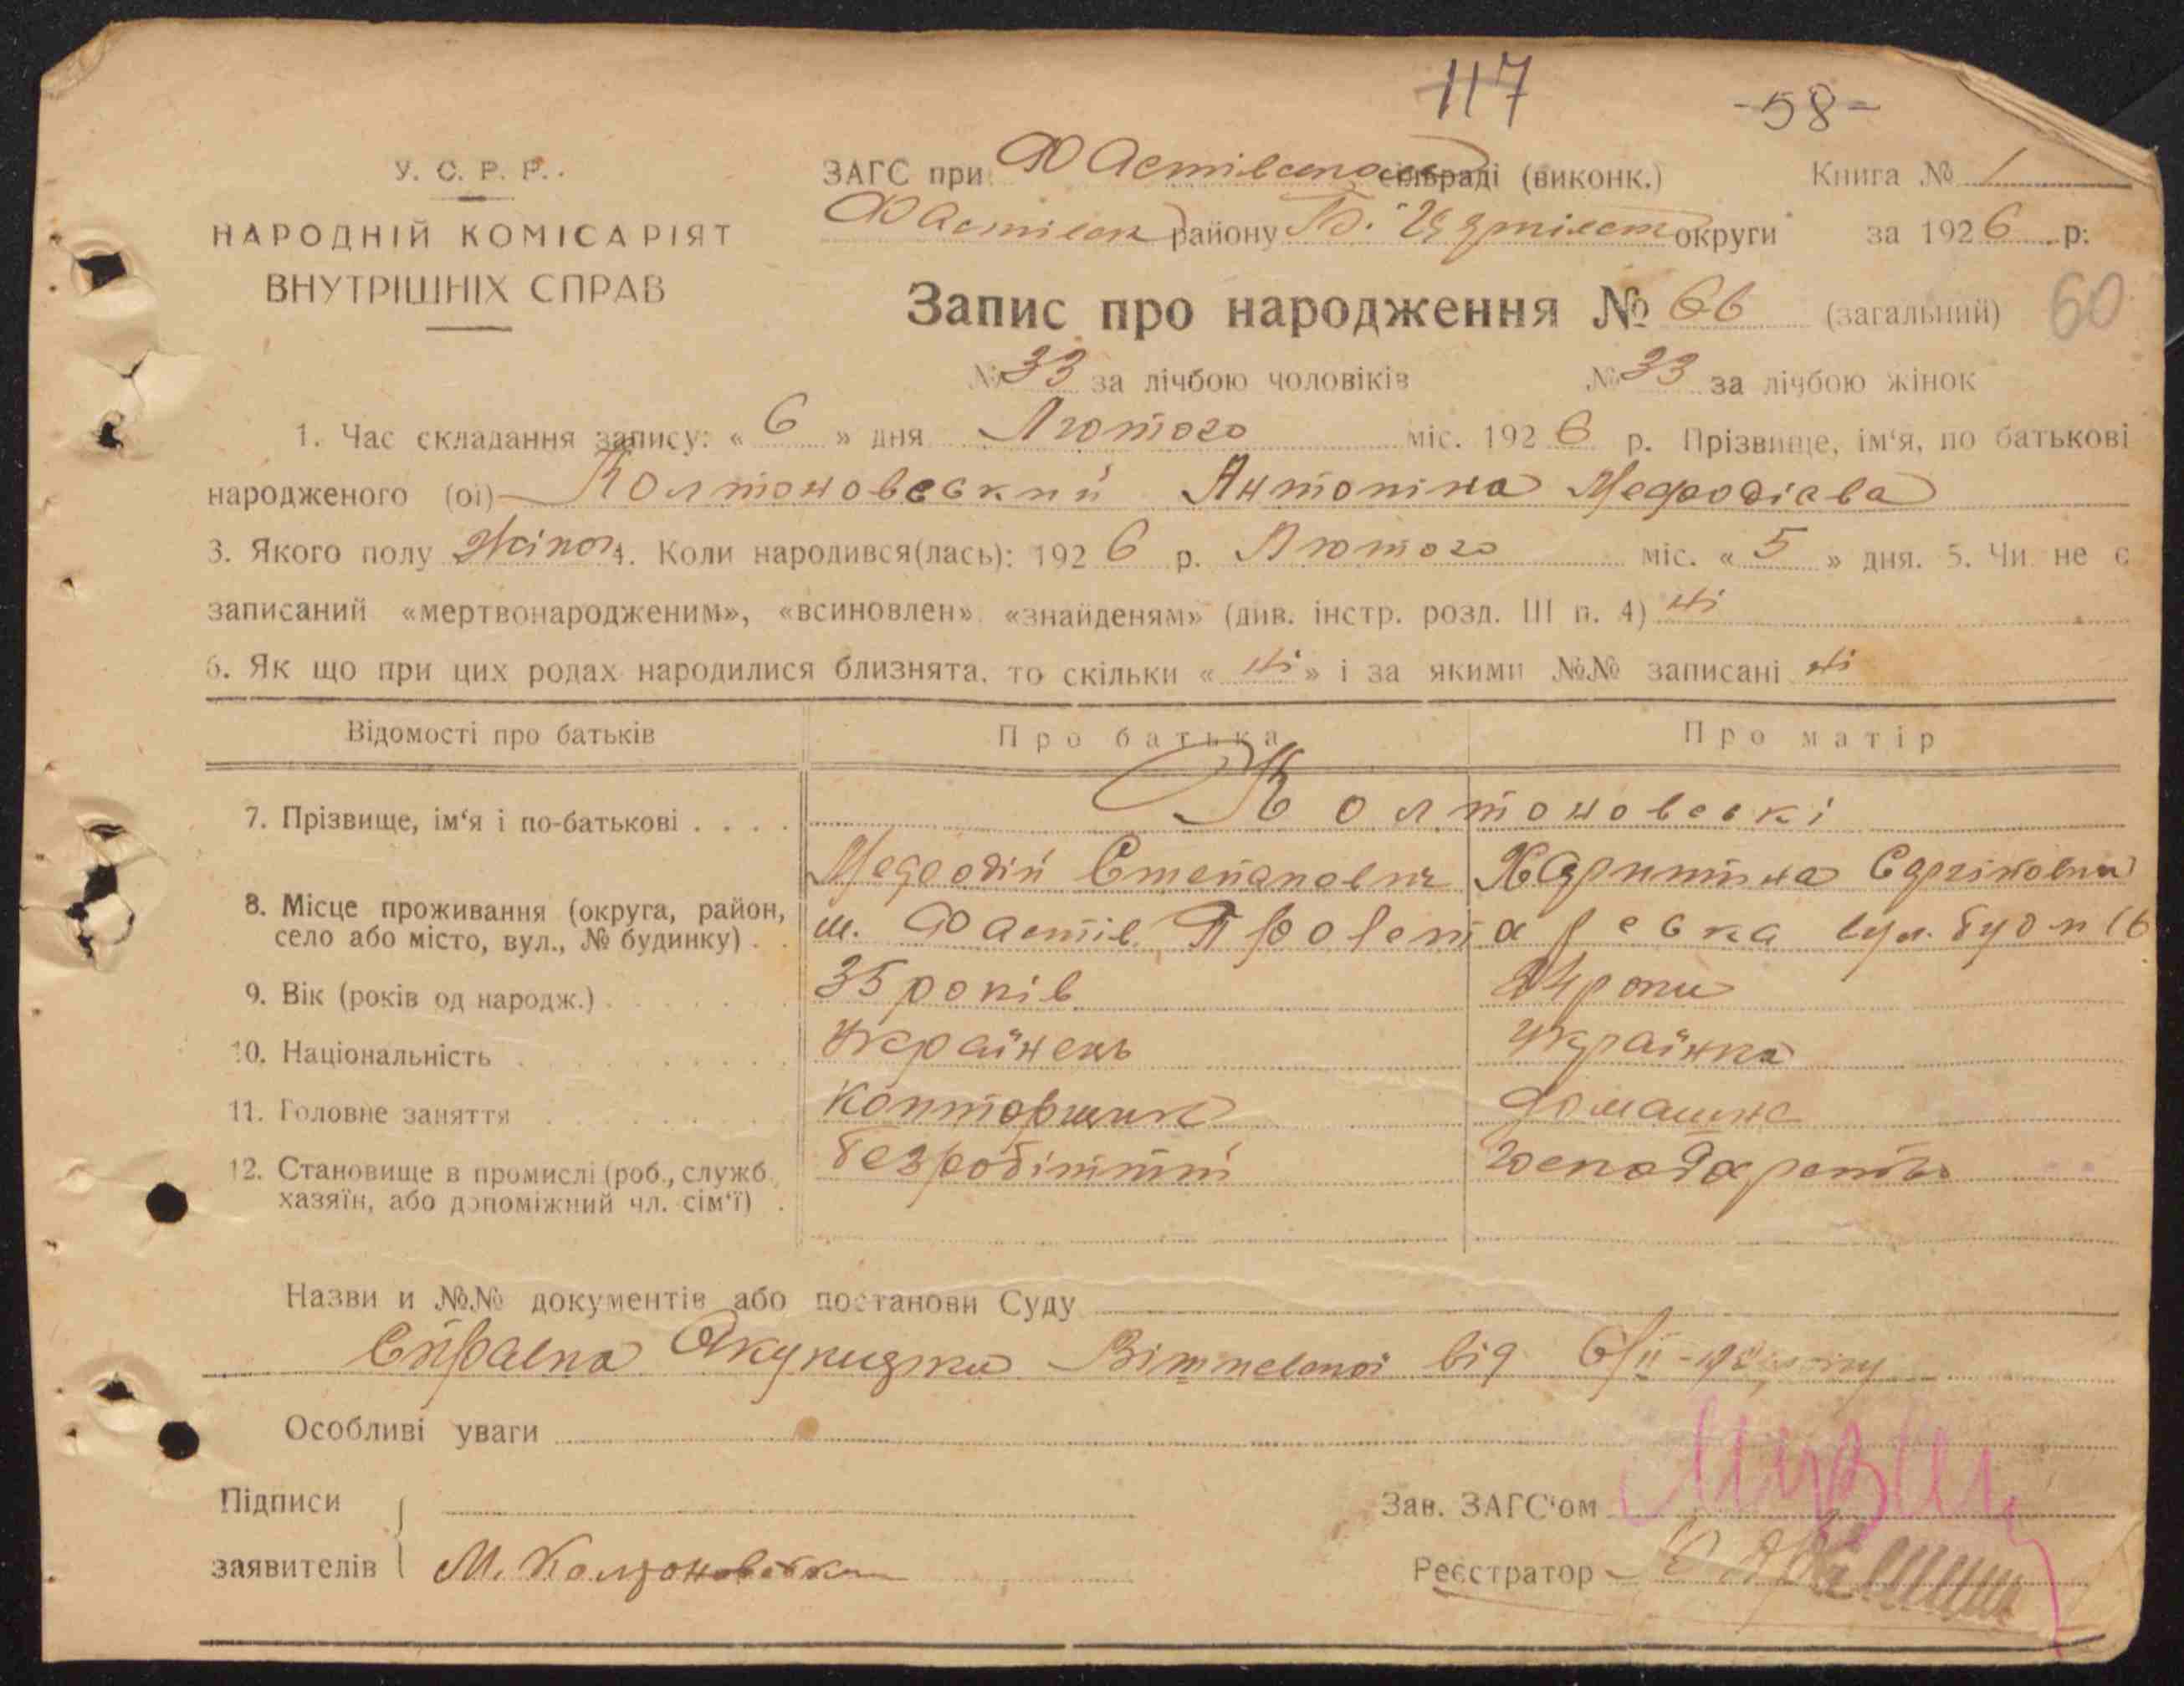 117
-58-
У. С. Р. Р.
НАРОДНІЙ КОМІСАРІЯТ
ВНУТРІШНІХ СПРАВ
ЗАГС при Фастівськ сільраді (виконк.) Книга № 1
Фастівськ району Б. Церківськ округи за 1926 р.
Запис про народження № 66 (загальний) 60
№ 33 за лічбою чоловіків № 33 за лічбою жінок
1. Час складання запису: « 6 » дня Лютого міс. 1926 р. Прізвище, ім'я, по батькові
народженого (ої) Колтоновський Антоніна Мефодієва
3. Якого полу жіноч 4. Коли народився(лась): 1926 р. Лютого міс. « 5 » дня. 5. Чи не є
записаний «мертвонародженим», «всиновлен» «знайденям» (див. інстр. розд. III п. 4) ні
6. Як що при цих родах народилися близнята, то скільки « ні » і за якими №№ записані ні
Відомості про батьків Про батька Про матір
7. Прізвище, ім'я і по-батькові Колтоновські
Мефодій Степанович Харитина
8. Місце проживання (округа, район,
село або місто, вул., № будинку) м. Фастів Пролетарська вул. буд № 16
9. Вік (років од народж.) 35 років 24 роки
10. Національність Українець Українка
11. Головне заняття Конторщик домашнє
12. Становище в промислі (роб., служб.,
хазяїн, або допоміжний чл. сім'ї) безробітний господарство
Назви и №№ документів або постанови Суду
Справка Акушерки від 6/II
Особливі уваги
Підписи
заявителів М. Колтоновський
Зав. ЗАГС'ом
Реєстратор